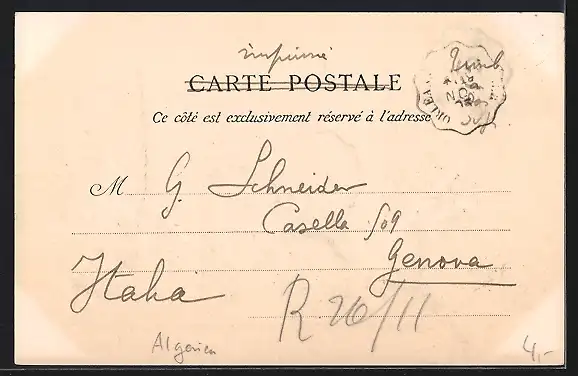 imprimé
CARTE POSTALE
Ce côté est exclusivement réservé à l'adresse
M G. Schneider
Casella 509
Genova
Italia
R 26/11
Algerien
4,-